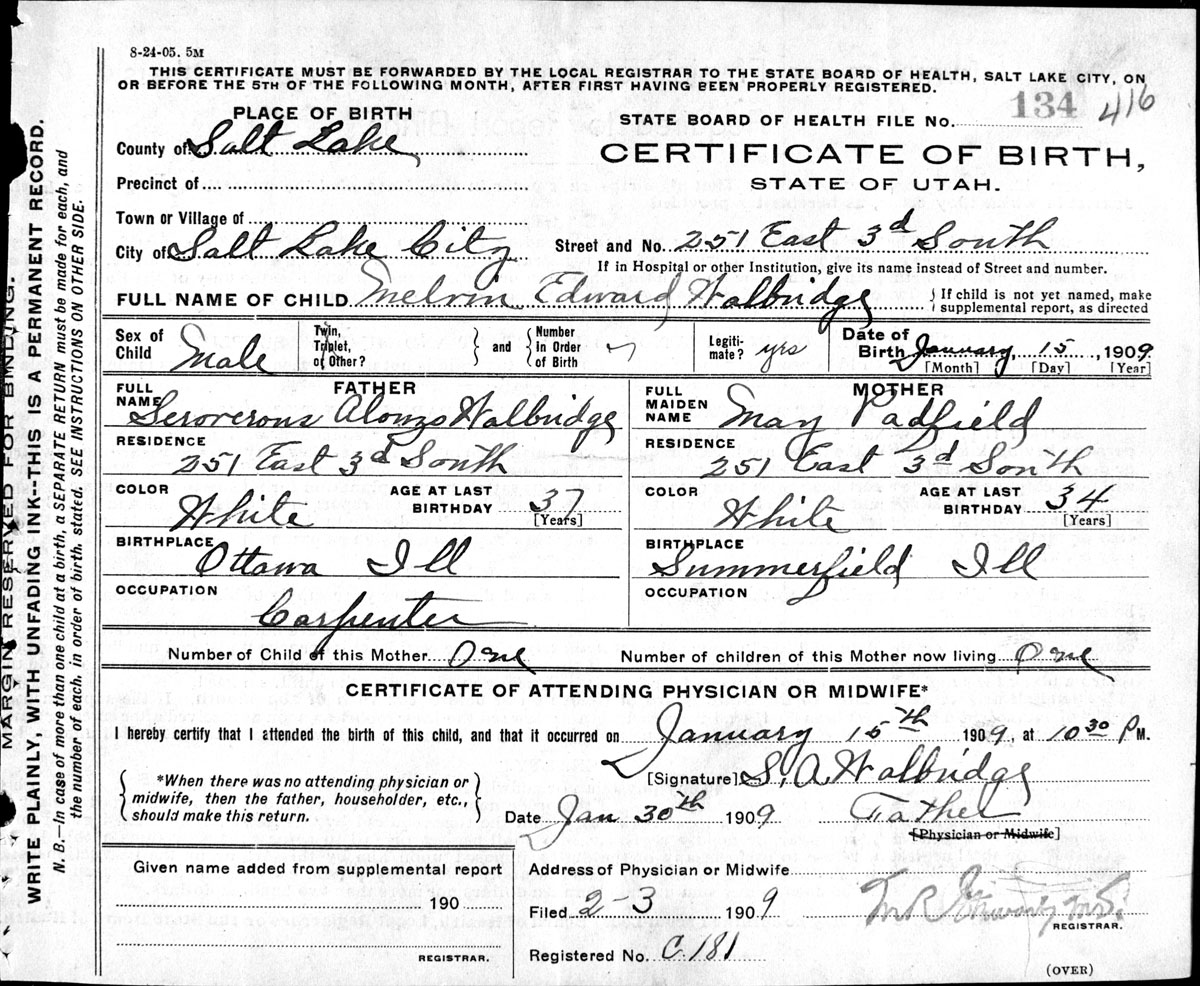 8-24-05. 5M
THIS CERTIFICATE MUST BE FORWARDED BY THE LOCAL REGISTRAR TO THE STATE BOARD OF HEALTH, SALT LAKE CITY, ON
OR BEFORE THE 5TH OF THE FOLLOWING MONTH, AFTER FIRST HAVING BEEN PROPERLY REGISTERED.
PLACE OF BIRTH
STATE BOARD OF HEALTH FILE No. 134 416
County of Salt Lake
CERTIFICATE OF BIRTH,
Precinct of
STATE OF UTAH.
Town or Village of
City of Salt Lake City Street and No. 251 East 3d South
If in Hospital or other Institution, give its name instead of Street and number.
FULL NAME OF CHILD Melvin Edward Walbridge { If child is not yet named, make
supplemental report, as directed
Sex of Child Male Twin, Triplet, or Other? } and { Number in Order of Birth Legiti-mate? yes Date of Birth January, 15, 1909
[Month] [Day] [Year]
FATHER MOTHER
FULL NAME Alonzo Walbridge FULL MAIDEN NAME May Padfield
RESIDENCE 251 East 3d South RESIDENCE 251 East 3d South
COLOR White AGE AT LAST BIRTHDAY 37 [Years] COLOR White AGE AT LAST BIRTHDAY 34 [Years]
BIRTHPLACE Ottawa Ill BIRTHPLACE Summerfield Ill
OCCUPATION Carpenter OCCUPATION
Number of Child of this Mother One Number of children of this Mother now living One
CERTIFICATE OF ATTENDING PHYSICIAN OR MIDWIFE*
I hereby certify that I attended the birth of this child, and that it occurred on January 15th 1909, at 10 30 P M.
{ *When there was no attending physician or
midwife, then the father, householder, etc.,
should make this return. }
[Signature] S. A. Walbridge
Date Jan 30th 1909 Father
[Physician or Midwife]
Given name added from supplemental report
190
REGISTRAR.
Address of Physician or Midwife
Filed 2-3 1909
REGISTRAR.
Registered No. C.181
(OVER)
MARGIN RESERVED FOR BINDING.
WRITE PLAINLY, WITH UNFADING INK--THIS IS A PERMANENT RECORD.
N. B.—In case of more than one child at a birth, a SEPARATE RETURN must be made for each, and
the number of each, in order of birth, stated. SEE INSTRUCTIONS ON OTHER SIDE.